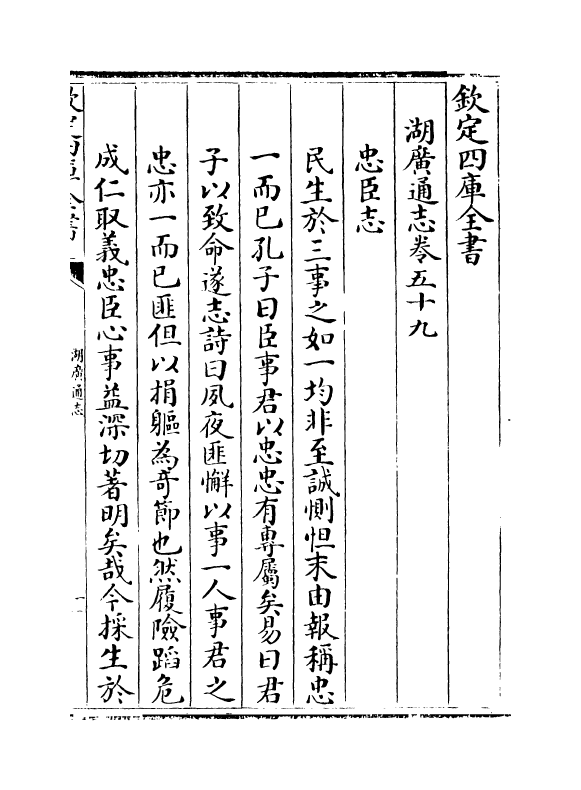 欽定四庫全書
湖廣通志卷五十九
忠臣志
民生於三事之如一均非至誠惻怛末由報稱忠
一而已孔子曰臣事君以忠忠有專屬矣易曰君
子以致命遂志詩曰夙夜匪懈以事一人事君之
忠亦一而已匪但以捐軀為奇節也然履險蹈危
成仁取義忠臣心事益深切著明矣哉今採生於
欽定四庫全書
湖廣通志
一